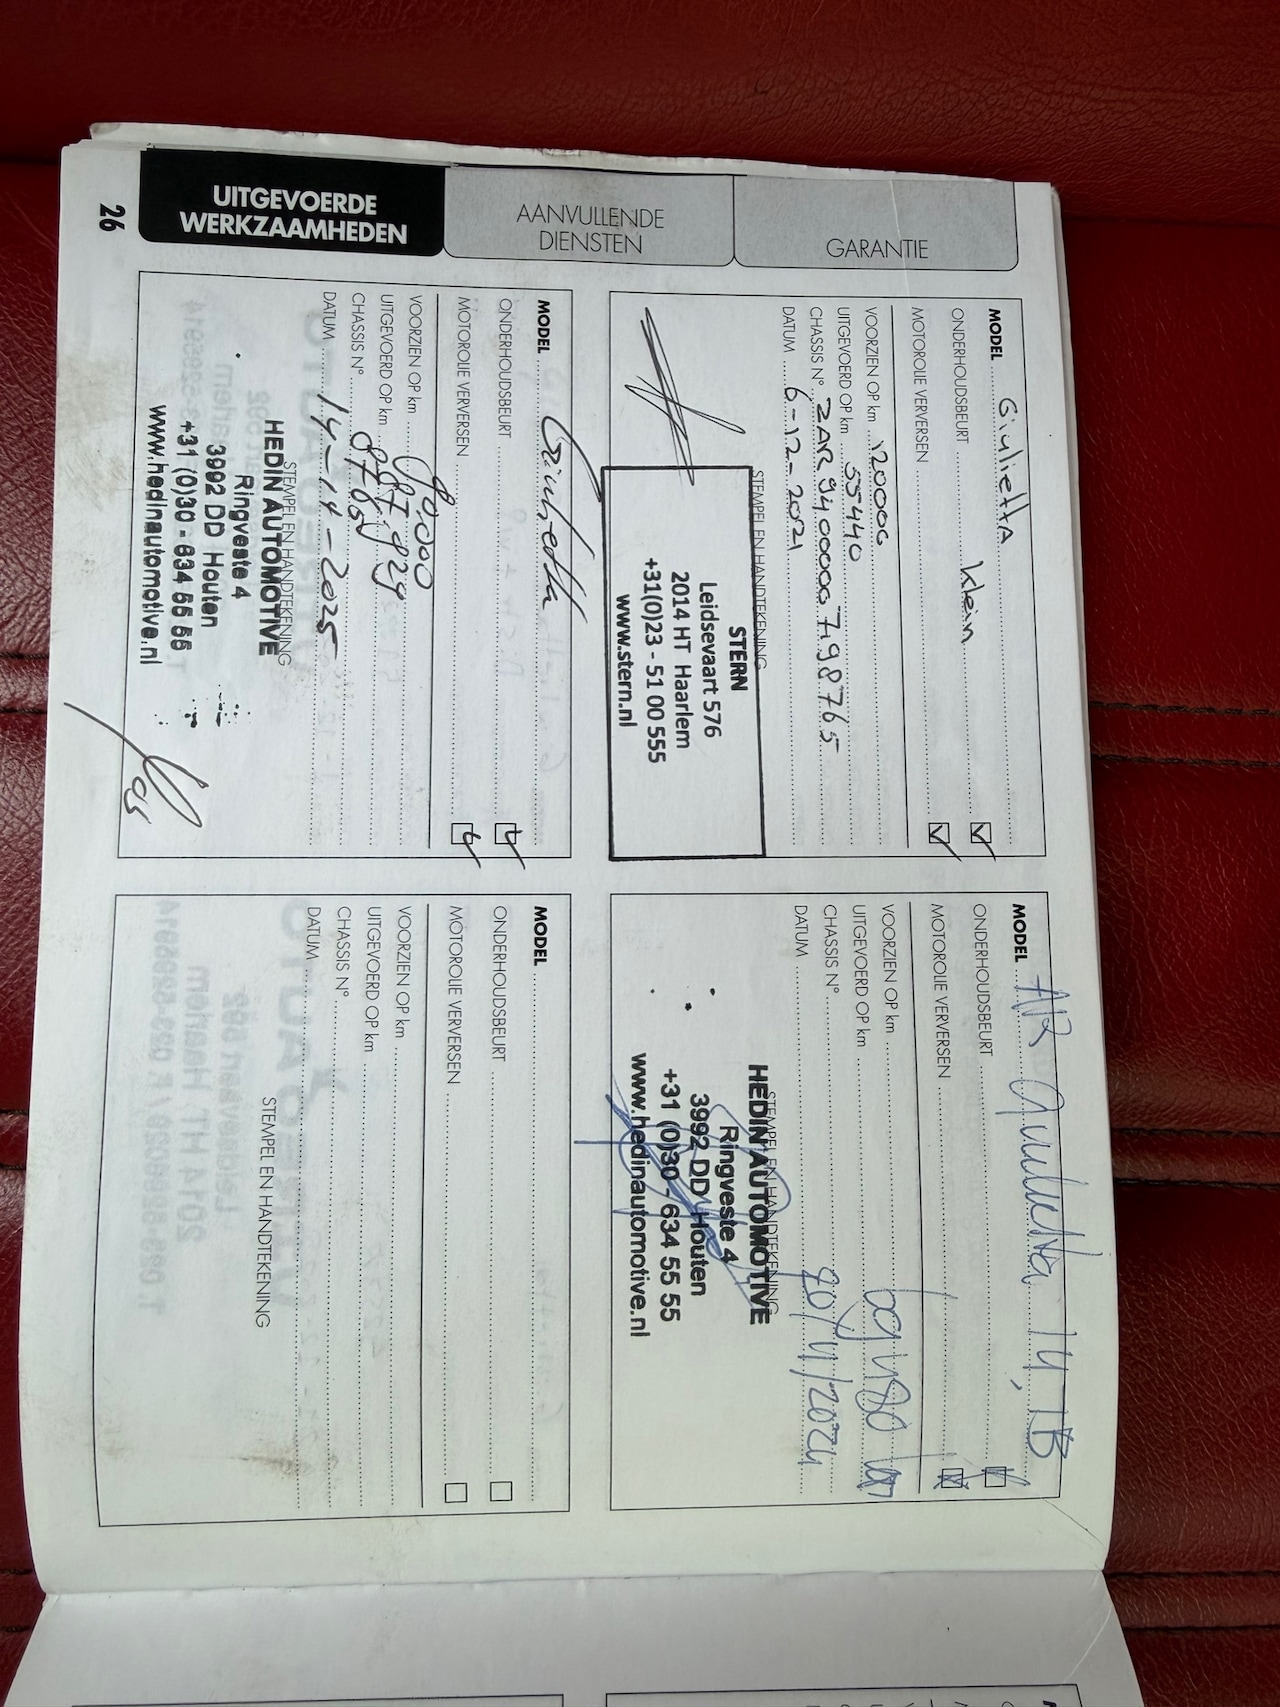 UITGEVOERDE
WERKZAAMHEDEN
AANVULLENDE
DIENSTEN
GARANTIE
26
MODEL Giulietta
ONDERHOUDSBEURT klein
MOTOROLIE VERVERSEN
VOORZIEN OP km 120000
UITGEVOERD OP km 55440
CHASSIS N° ZAR94000007198765
DATUM 6-12-2021
STEMPEL EN HANDTEKENING
STERN
Leidsevaart 576
2014 HT Haarlem
+31(0)23 - 51 00 555
www.stern.nl
MODEL AR Giulietta 1.4 TB
ONDERHOUDSBEURT
MOTOROLIE VERVERSEN
VOORZIEN OP km
UITGEVOERD OP km
CHASSIS N°
DATUM
STEMPEL EN HANDTEKENING
HEDIN AUTOMOTIVE
Ringveste 4
3992 DD Houten
+31 (0)30 - 634 55 55
www.hedinautomotive.nl
MODEL Giulietta
ONDERHOUDSBEURT
MOTOROLIE VERVERSEN
VOORZIEN OP km 90000
UITGEVOERD OP km
CHASSIS N°
DATUM 14-14-2025
STEMPEL EN HANDTEKENING
HEDIN AUTOMOTIVE
Ringveste 4
3992 DD Houten
+31 (0)30 - 634 55 55
www.hedinautomotive.nl
MODEL
ONDERHOUDSBEURT
MOTOROLIE VERVERSEN
VOORZIEN OP km
UITGEVOERD OP km
CHASSIS N°
DATUM
STEMPEL EN HANDTEKENING